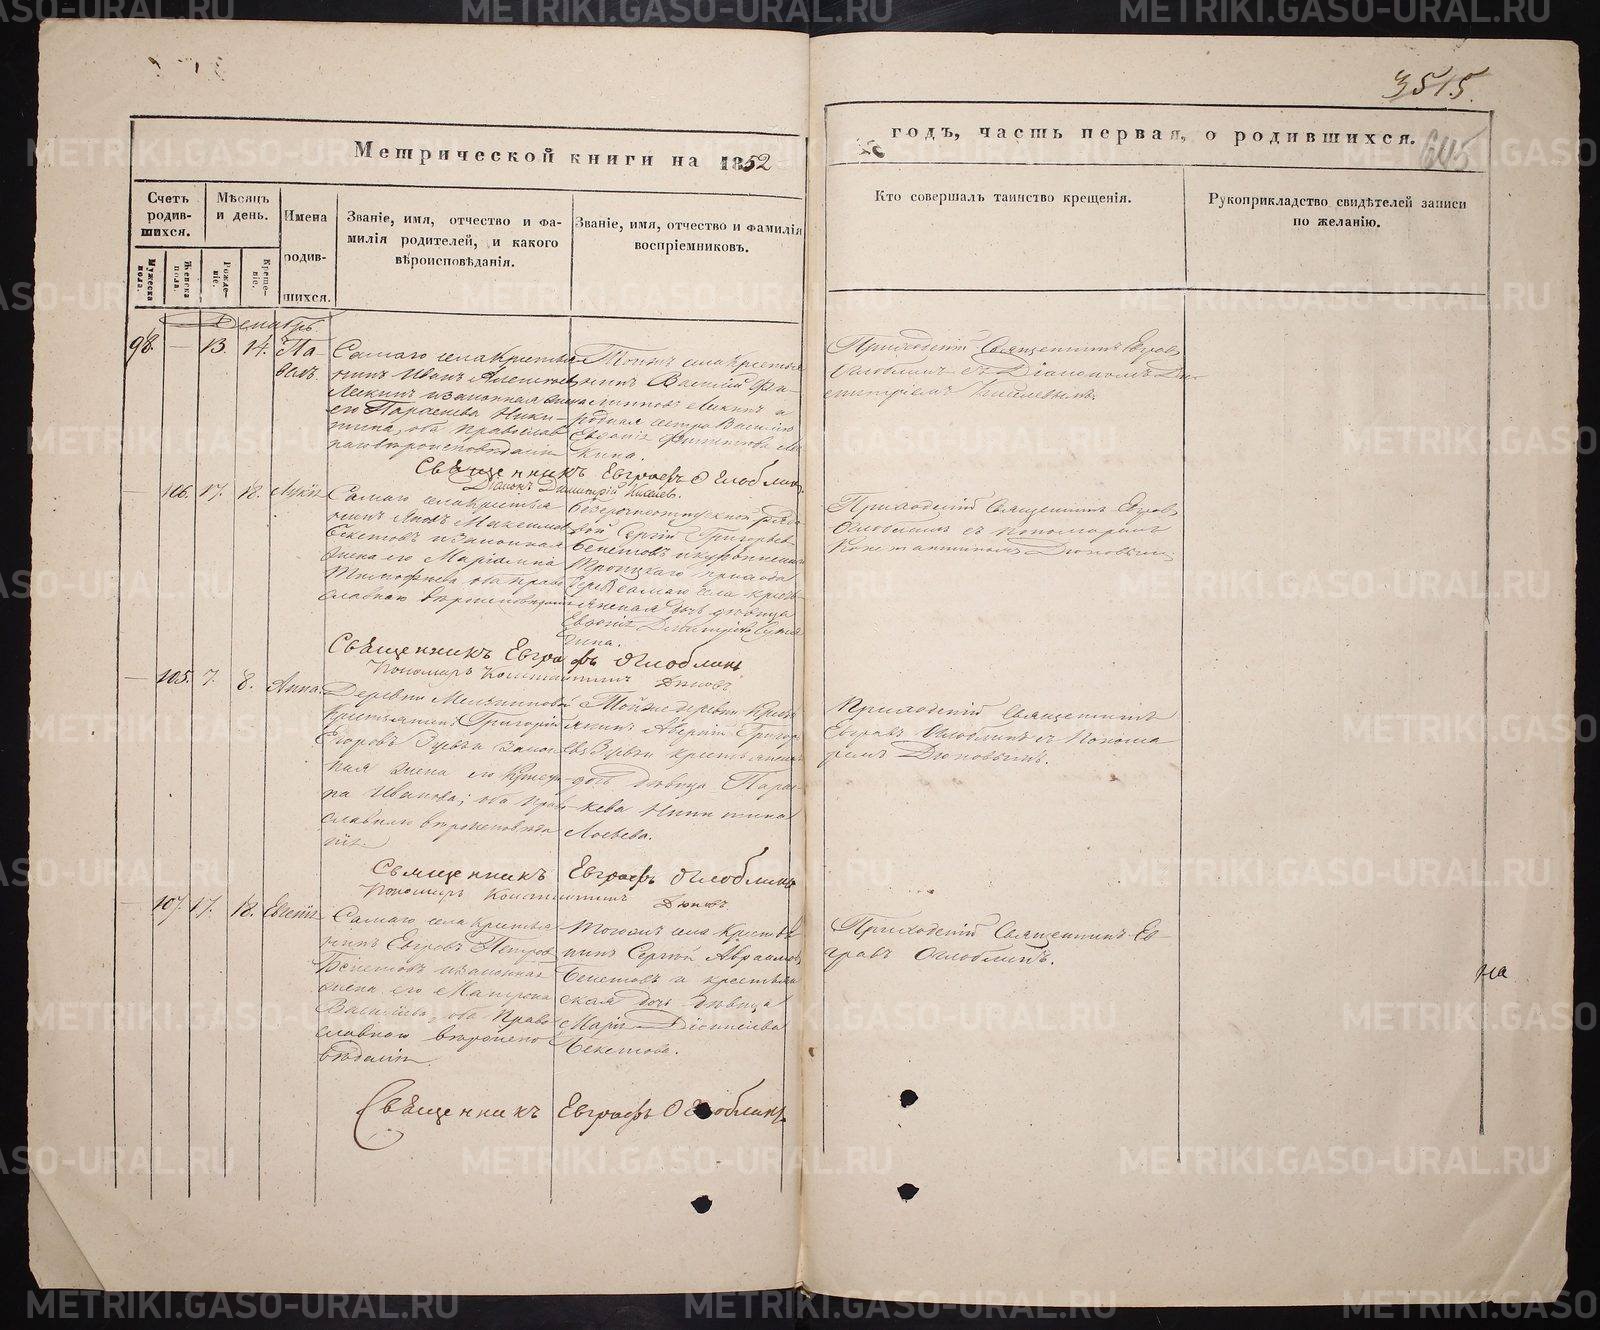 3515.
645
Метрической книги на 1852
годъ, часть первая, о родившихся.
Счетъ родив-шихся.
Мѣсяцъ и день.
Имена родив-шихся.
Званіе, имя, отчество и фа-
милія родителей, и какого
вѣроисповѣданія.
Званіе, имя, отчество и фамилія
воспріемниковъ.
Кто совершалъ таинство крещенія.
Рукоприкладство свидѣтелей записи
по желанію.
Мужеска пола.
Женска пола.
Рожде-ніе.
Креще-ніе.
Декабрь
98. — 13. 14. Па-
велъ.
Самаго села крестья
нинъ Иванъ Алексѣев
Лекинъ и законная жена
его Параскева Ники-
тина, оба православ
наго вѣроисповѣданія
Тогоже села крестья
нинъ Василій Фи-
липповъ Лекинъ и
родная сестра Василію
Евдокія Филиппова Ле
кина.
Приходскій Священникъ Евграфъ
Оглоблинъ съ Діакономъ Ди-
митріемъ Киселевымъ.
Священникъ Евграфъ Оглоблинъ.
Діаконъ Димитрій Киселев.
— 106. 17. 18.
Самаго села крестья
нинъ Яковъ Максимов
Бекетовъ и законная
жена его Маріамна
Тимофѣева оба право
славнаго вѣроисповѣданія
безсрочноотпускной рядо
вой Сергій Григорьев
Бекетовъ
Троицкаго прихода
самаго села кресть
янская дочь дѣвица
Евдокія Димитріева
Приходскій Священникъ Евграф
Оглоблинъ съ пономаремъ
Константиномъ Дюковымъ
Священникъ Евграфъ Оглоблинъ
Пономарь Константинъ Дюковъ
— 105. 7. 8. Анна.
Деревни
крестьянинъ Григорій
Егоровъ Зуевъ закон
ная жена его
на Иванова; оба право
славнаго вѣроисповѣда
нія.
Тойже деревни кресть
янинъ Аверкій Григор
евъ Зуевъ и крестьянска
дочь дѣвица Парас-
кева Никитина
Приходскій Священникъ
Евграфъ Оглоблинъ съ Понома
ремъ Дюковымъ.
Священникъ Евграфъ Оглоблинъ
Пономарь Константинъ Дюковъ
— 107. 17. 18. Евгенія
Самаго села крестья
нинъ Евграфъ Петров
Бекетовъ и законная
жена его Матрона
Васильева, оба Право
славнаго вѣроиспо
вѣданія
Тогоже села крестья
нинъ Сергій Авраамов
Бекетовъ и крестьян
ская дочь дѣвица
Марія Діонисіева
Бекетова.
Приходскій Священникъ Ев-
графъ Оглоблинъ.
на
Священникъ Евграфъ Оглоблинъ
METRIKI.GASO-URAL.RU